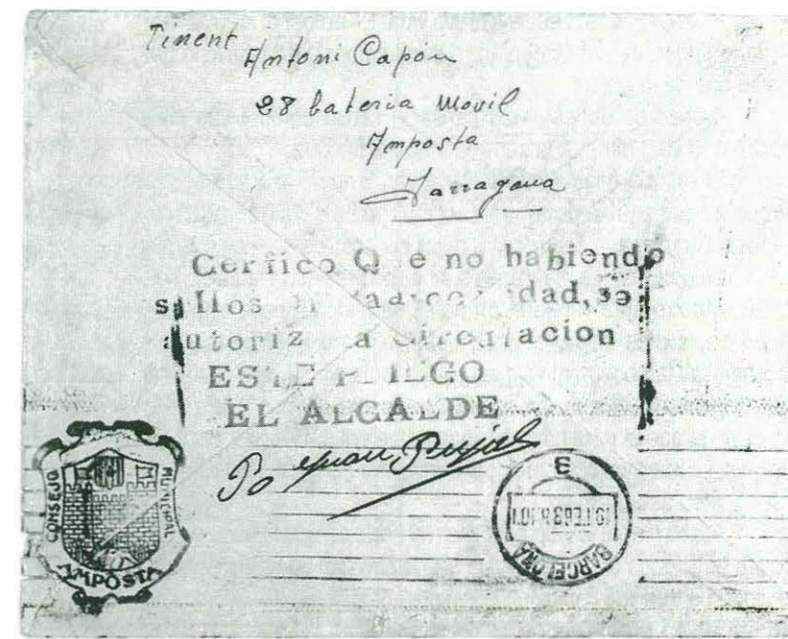 Tinent Antoni Capón
28 bateria Movil
Amposta
Tarragona
Cerfico Q e no habiendo
s llos idad, se
autoriz a circulacion
ESTE P LEGO
EL ALCALDE
Po Juan Pujol
CONSEJO MUNICIPAL
AMPOSTA
BARCELONA